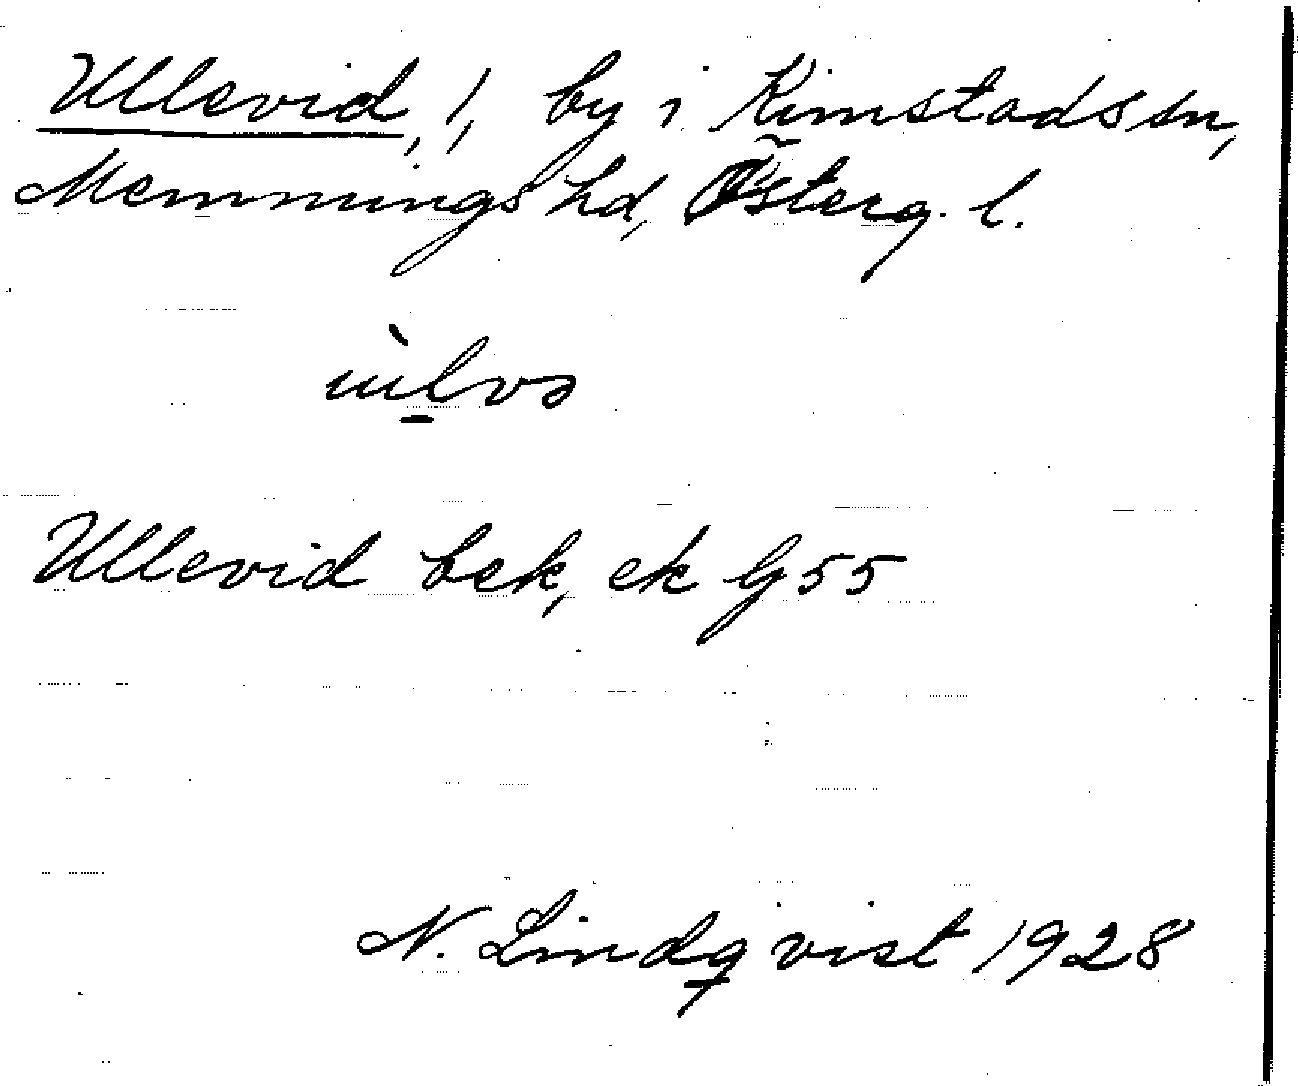 Ullevid, 1, by i Kimstads sn,
Memmings hd, Österg. l.
ùl̠və
Ullevid bek, ek G 55
N. Lindqvist 1928